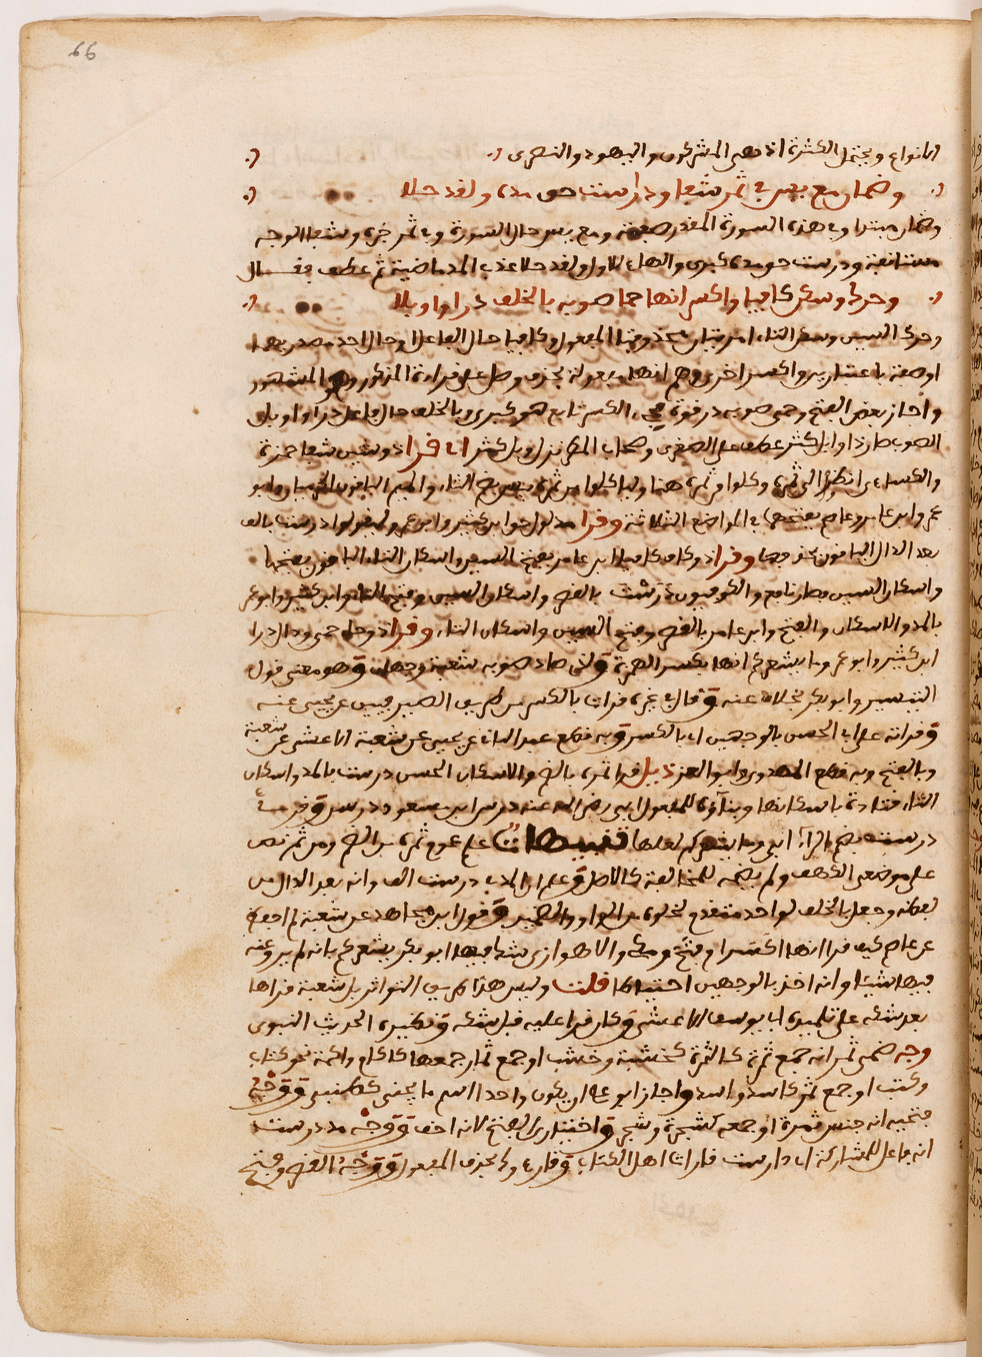 66
الانواع ويحتمل الكثرة اذ هم المشركون واليهود والنصرى
وضمان مع يس في ثمر شفا ودارست حق مده ولقد حلا
وضمان مبتدا وفي هذه السورة المقدر صفته ومع يس حال السورة وفي ثمر خبره وشفا الوجه
مستانفة ودرست حق مده كبرى والهاء للاول ولقد حلا عذب المد ماضية ثم عطف فقال
وحرك وسكن كافيا واكسر انها حما صوبه بالخلف در واوبلا
وحرك السين وسكن التاء امريتان محذوفتا المفعول وكافيا حال الفاعل او حال احد مصدريهما
او صفة باعتبارين واكسر اخرى وهم انها مفعوله بحذف وصل على قراءة المذكور وهو المشهور
واجاز بعض الفتح وحمى صوبه در قوة الكسر تابع هو كبرى وبالخلف حال فاعل در واوبل
الصوب صار ذا وابل كثير عطف على الصغرى وصحاب المطر نزل وبل كثير اي قرا ذو شين شفا حمزة
والكسائي انظروا الى ثمره وكلوا من ثمره هنا وليا كلوا من ثمره بيس بضم الثاء والميم الباقون الحرميان وابو
عمرو وابن عامر وعاصم بفتحهما في المواضع الثلاثة وقرا مدلول حق ابن كثير وابو عمرو وليقولوا درست بالف
بعد الدال الباقون بحذفها وقرا ذو كاف كافيا ابن عامر بفتح السين واسكان التاء الباقون بفتحها
واسكان السين فصار نافع والكوفيون درست بالقصر واسكان السين وفتح التاء وابن كثير وابو عمرو
بالمد والاسكان والفتح وابن عامر بالقصر وفتح السين واسكان التاء وقرا ذو حاء حمى ودال در
ابن كثير وابو عمرو وما يشعركم انها بكسر الهمزة وفي صاد صوبه شعبة وجهان وهو معنى قول
التيسير وابو بكر بخلاف عنه وقال في غيره قرات بالكسر من طريق الصيرفيين عن يحيى عنه
وقراته على ابي الحسن بالوجهين اي بالكسر وبه قطع عبد الباقي عن يحيى عن شعبة الاعشى عن شعبة
وبالفتح وبه قطع المهدوي وابو العز ذيل قرا ثمره بالضم والاسكان الحسن درست بالمد واسكان
التاء قتادة باسكانها وبناؤه للمفعول ابي رضي الله عنه درس ابن مسعود ودرس وقرئ
درست بضم الراء ابي وما يشعركم لعلها تنبيهات علم عموم ثمره من الضم ومن ثم نص
على موضعي الكهف ولم يضمه للمخالفة كالاصل وعلم ان المد في درست الف وانه بعد الدال من
لفظه وجعل بالخلف لواحد متقدم لخلوه من الواو والضمير وقول ابن مجاهد عن شعبة لم احفظ
عن عاصم كيف قرا انها اكسرا ام فتح ومكي والاهوازي شك فيها ابو بكر يشعركم بانه لم يرو عنه
فيها شيئا وانه اخذ بالوجهين احتياطا قلت وليس هذا طريق التواتر بل شعبة قراها
بعد شكه على تلميذه ابي يوسف الاعشى وكان قرا عليه قبل شكه ونظيره الحديث النبوي
وجه ضمي ثمر انه جمع ثمرة كالثمرة كخشبة وخشب او جمع ثمار جمعها كاكام واكمة نحو كتاب
وكتب او جمع ثمر كاسد واسد واجاز ابو علي ان يكون واحدا اسم ما يجنى كطنب ووجه
فتحيه انه جنس ثمرة او جمعه كشجرة وشجر واختياري الفتح لانه اخف ووجه مد درست
انه فاعل للمشاركة اي دارست قارات اهل الكتاب وقاروك بحذف المفعول ووجه القصر وفتح